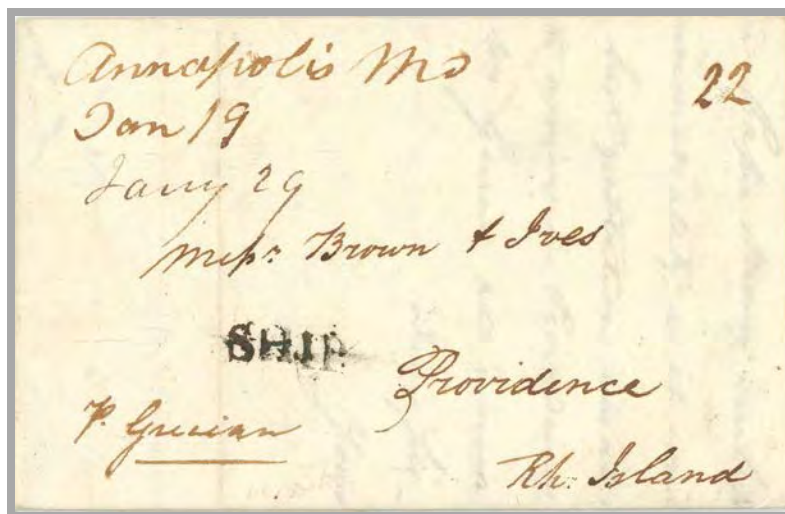 Annapolis Md
22
Jan 19
Jany 29
Messrs. Brown & Ives
SHIP
Providence
P. Grecian
Rh. Island